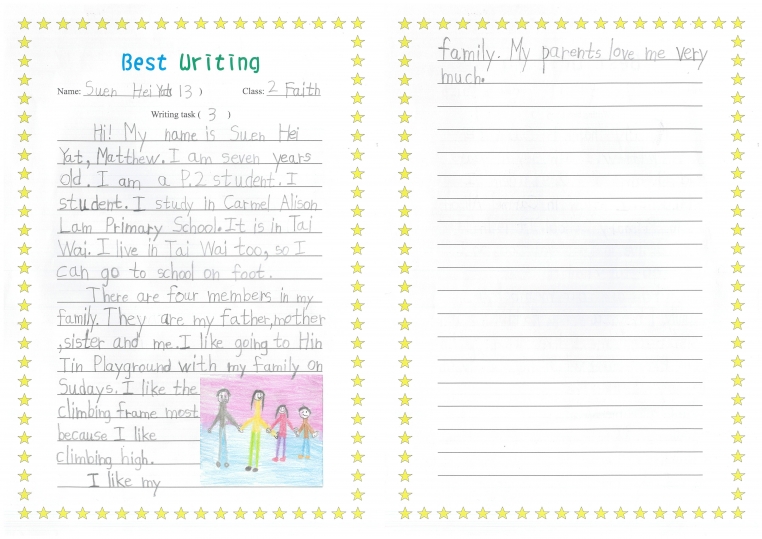 Best Writing
Name: Suen Hei Yat 13 )
Class: 2 Faith
Writing task ( 3 )
Hi! My name is Suen Hei
Yat, Matthew. I am seven years
old. I am a P.2 student. I
student. I study in Carmel Alison
Lam Primary School. It is in Tai
Wai. I live in Tai Wai too, so I
can go to school on foot.
There are four members in my
family. They are my father, mother
, sister and me. I like going to Hin
Tin Playground with my family on
Sudays. I like the
climbing frame most
because I like
climbing high.
I like my
family. My parents love me very
much.